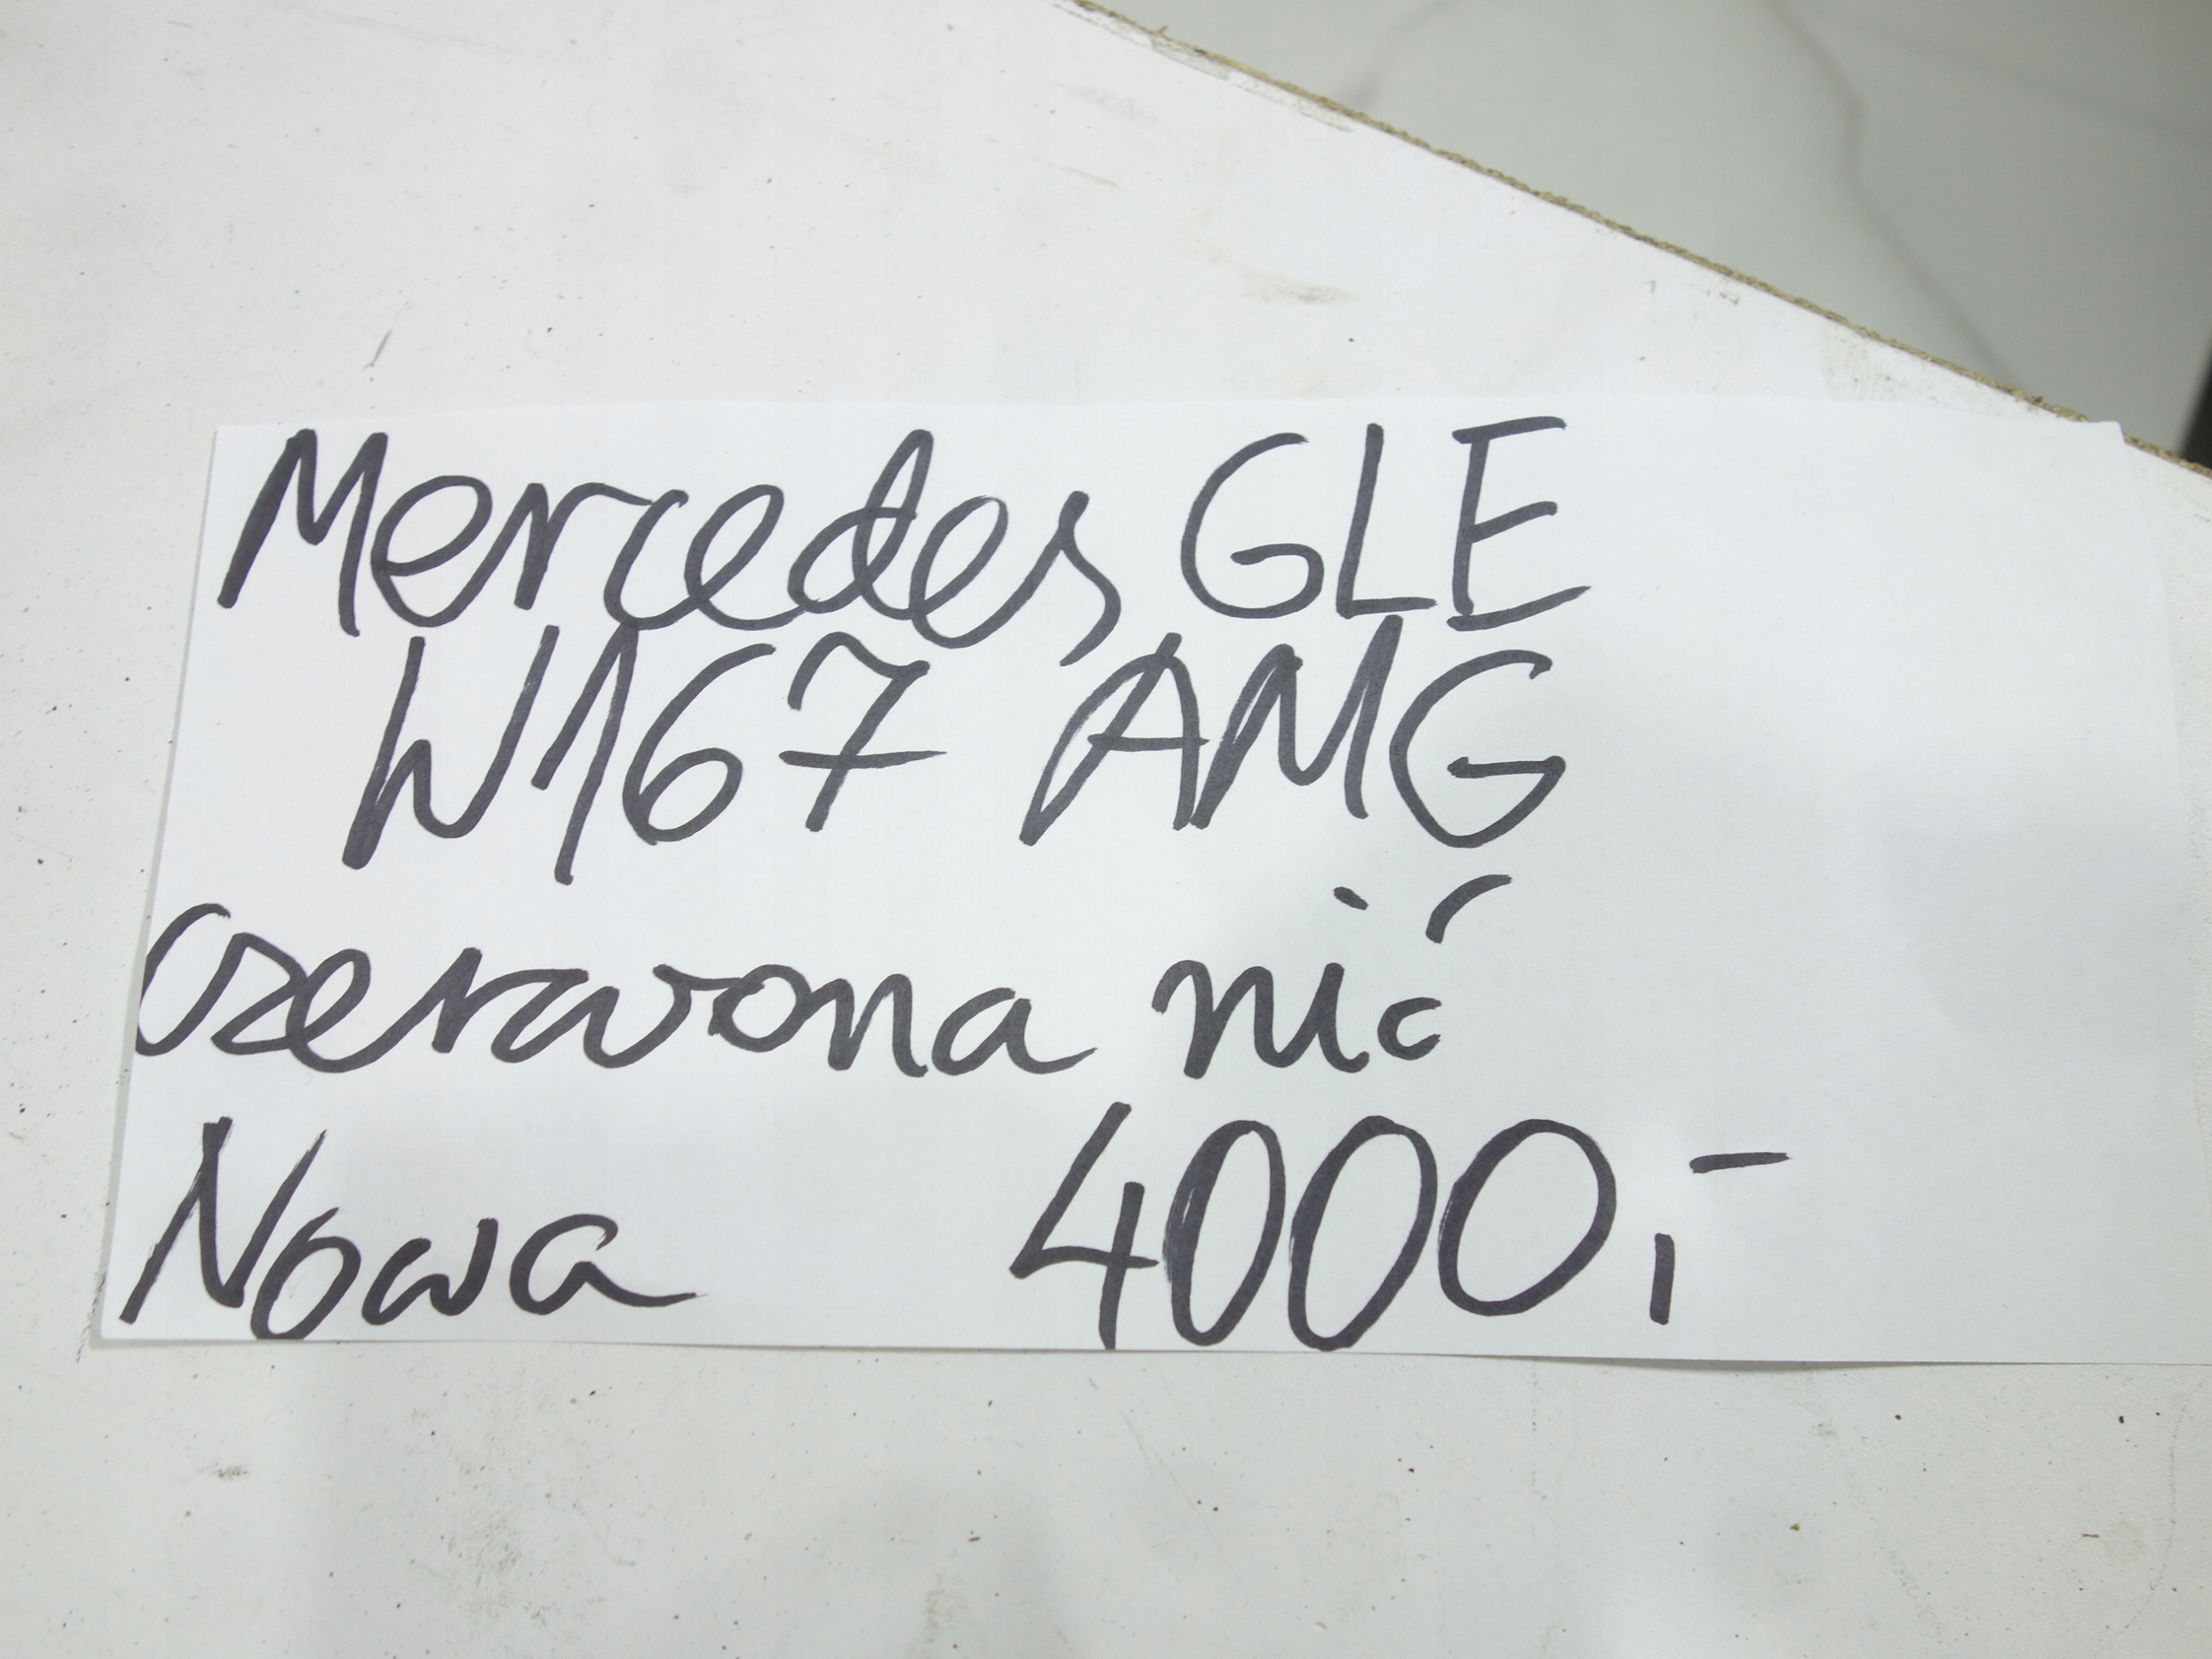 Mercedes GLE
W167 AMG
czerwona nić
Nowa 4000,-